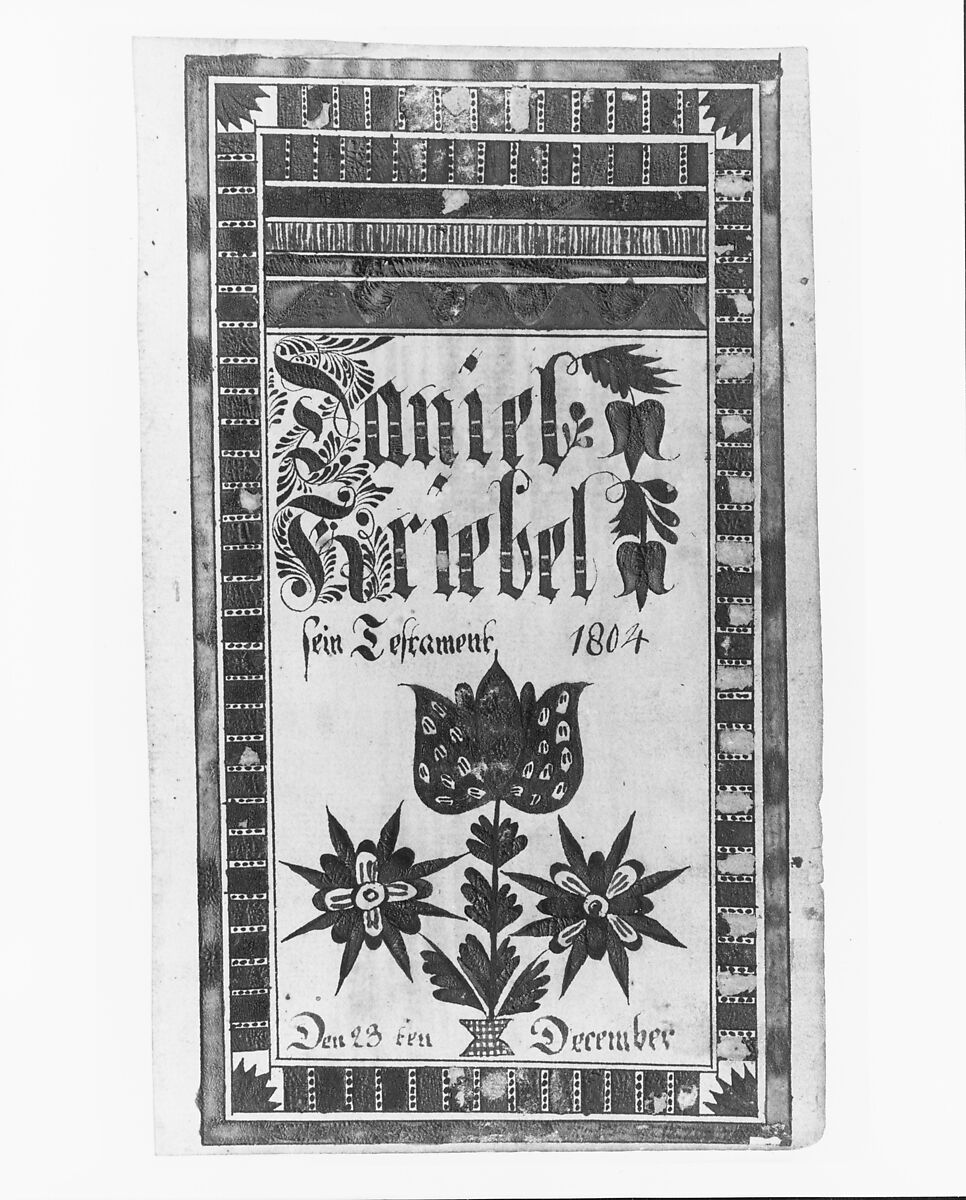 Daniel
Kriebel
sein Testament, 1804
Den 23 ten December